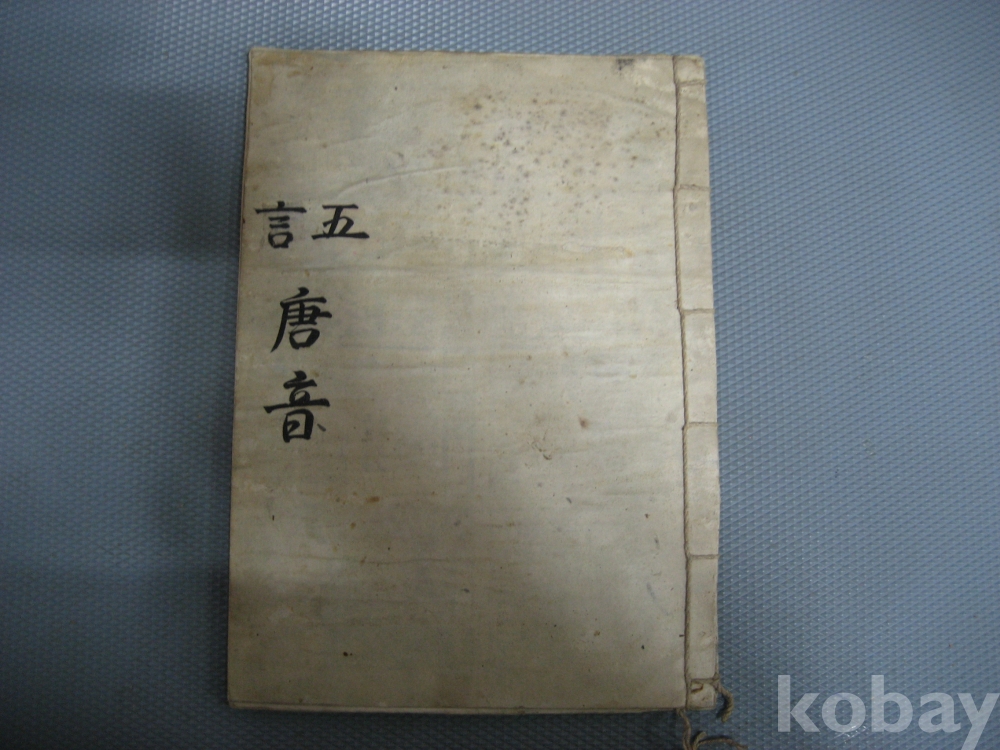 五言
唐音
kobay